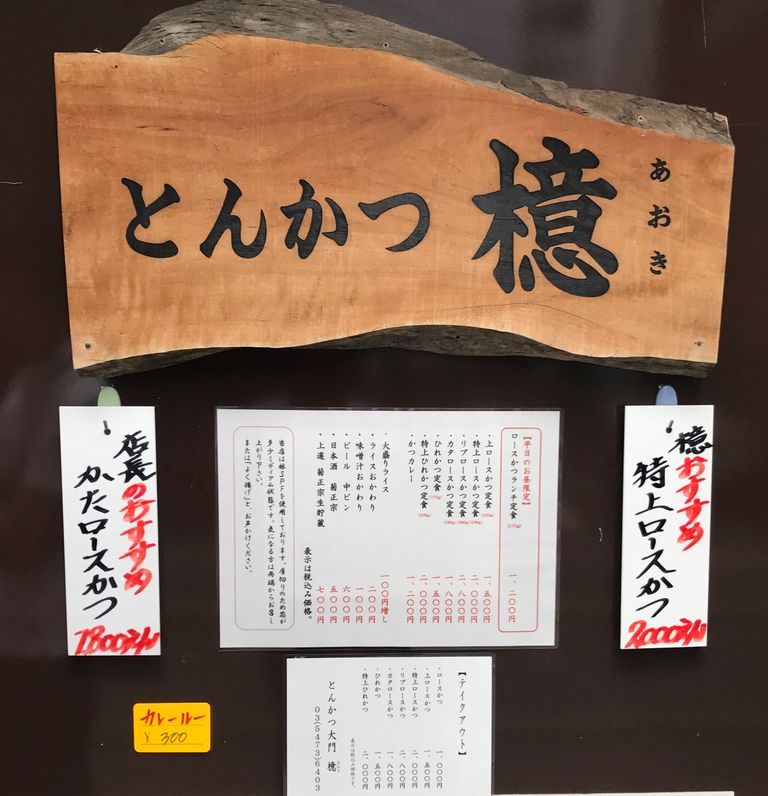 とんかつ 檍
あおき
檍おすすめ
特上ロースかつ
2000えん
【平日のお昼限定】
ロースかつランチ定食(170g) 一、二〇〇円
・上ロースかつ定食 一、五〇〇円
・特上ロースかつ定食 二、〇〇〇円
・リブロースかつ定食 二、八〇〇円
・カタロースかつ定食 一、八〇〇円
・ひれかつ定食 一、五〇〇円
・特上ひれかつ定食 二、〇〇〇円
・かつカレー 一、二〇〇円
・大盛りライス 一〇〇円増し
・ライスおかわり 二〇〇円
・味噌汁おかわり 一〇〇円
・ビール 中ビン 六〇〇円
・日本酒 菊正宗 五〇〇円
・上選 菊正宗生貯蔵 七〇〇円
表示は税込み価格。
当店は林SPFを使用しております。厚切りのため芯が
多少ミディアム状態です。気になる方は両端からお召し
上がり下さい。
または「よく揚げ」と、お声かけください。
店長のおすすめ
かたロースかつ
1800えん
【テイクアウト】
・ロースかつ 一、〇〇〇円
・上ロースかつ 一、五〇〇円
・特上ロースかつ 二、〇〇〇円
・リブロースかつ 二、八〇〇円
・カタロースかつ 一、八〇〇円
・ひれかつ 一、五〇〇円
・特上ひれかつ 二、〇〇〇円
表示は税込み価格です。
とんかつ大門 檍
03(5473)6403
カレールー
¥300